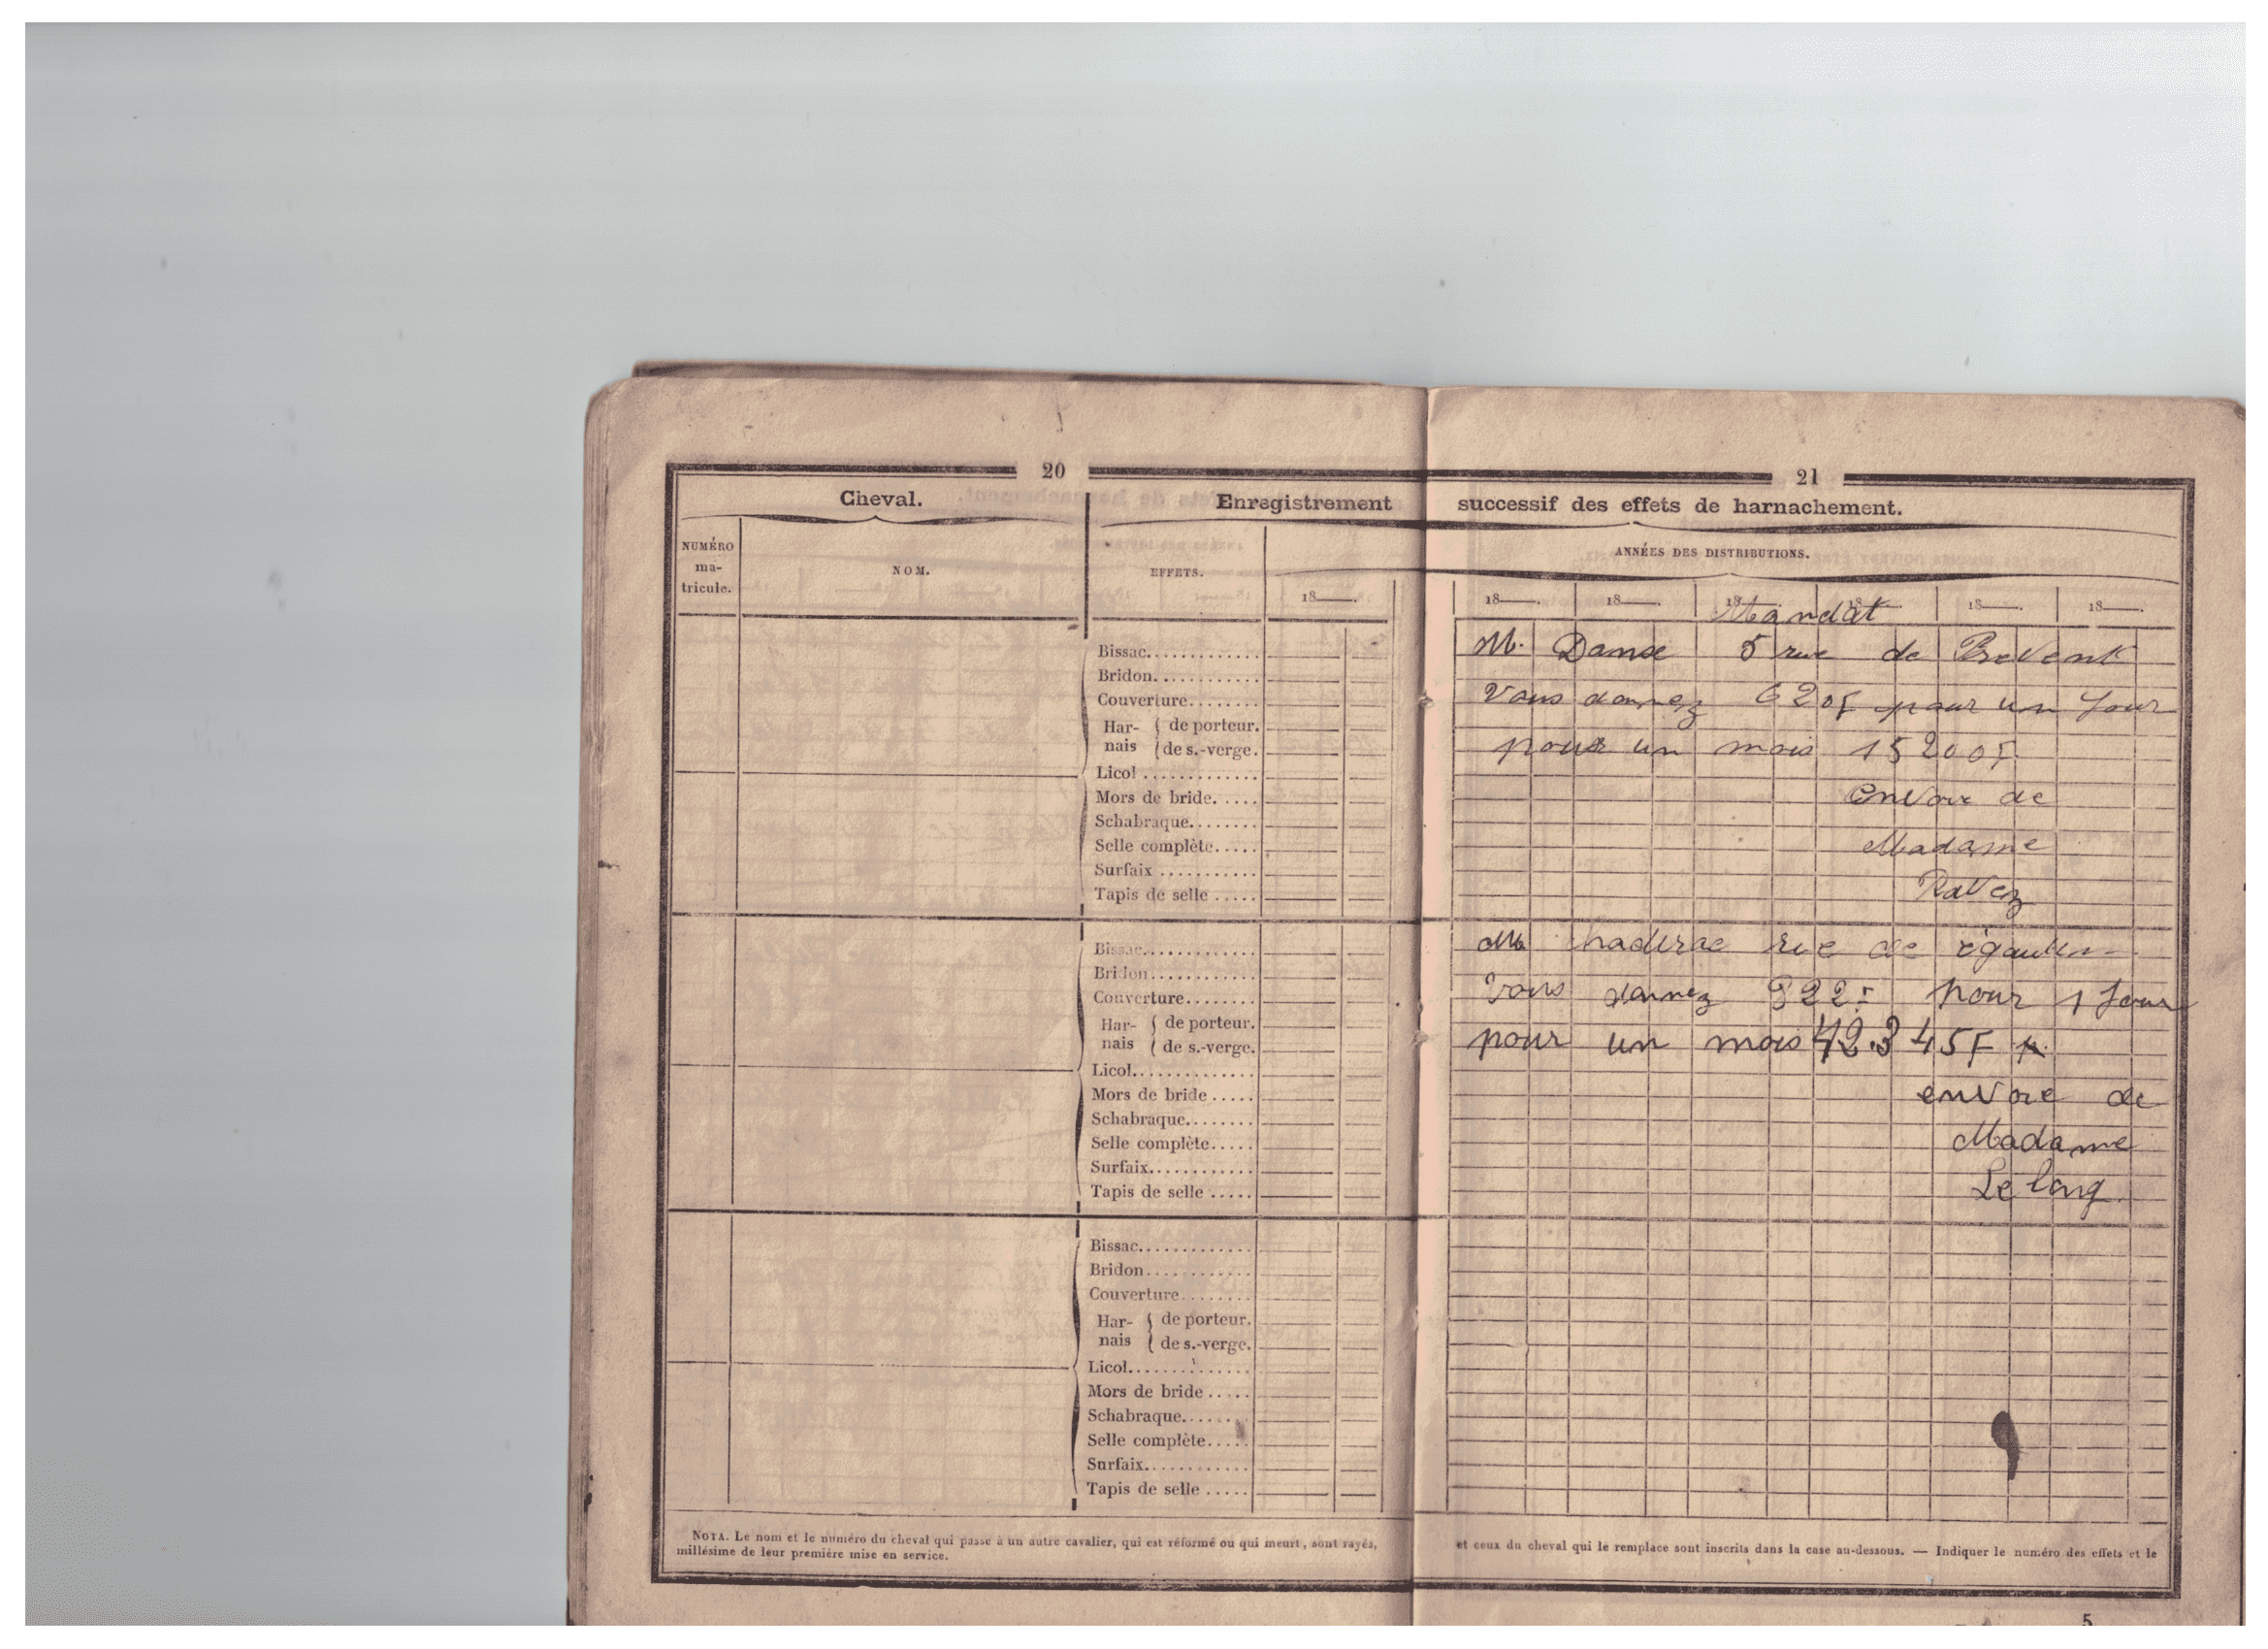 20
Cheval.
Enregistrement
NUMÉRO
ma-
tricule.
NOM.
EFFETS.
18 .
Bissac
Bridon
Couverture
Har-
nais
de porteur.
de s.-verge.
Licol
Mors de bride
Schabraque
Selle complète
Surfaix
Tapis de selle
Bissac
Bridon
Couverture
Har-
nais
de porteur.
de s.-verge.
Licol
Mors de bride
Schabraque
Selle complète
Surfaix
Tapis de selle
Bissac
Bridon
Couverture
Har-
nais
de porteur.
de s.-verge.
Licol
Mors de bride
Schabraque
Selle complète
Surfaix
Tapis de selle
NOTA. Le nom et le numéro du cheval qui passe à un autre cavalier, qui est réformé ou qui meurt, sont rayés,
millésime de leur première mise en service.
21
successif des effets de harnachement.
ANNÉES DES DISTRIBUTIONS.
18 . 18 . 18 . 18 . 18 . 18 .
Mandat
M. Danse 5 rue de
Vous donnez pour un Jour
pour un mois
envoie de
Madame
Ravez
rue de
Vous donnez pour 1 Jour
pour un mois
envoie de
Madame
Le long
et ceux du cheval qui le remplace sont inscrits dans la case au-dessous. — Indiquer le numéro des effets et le
5